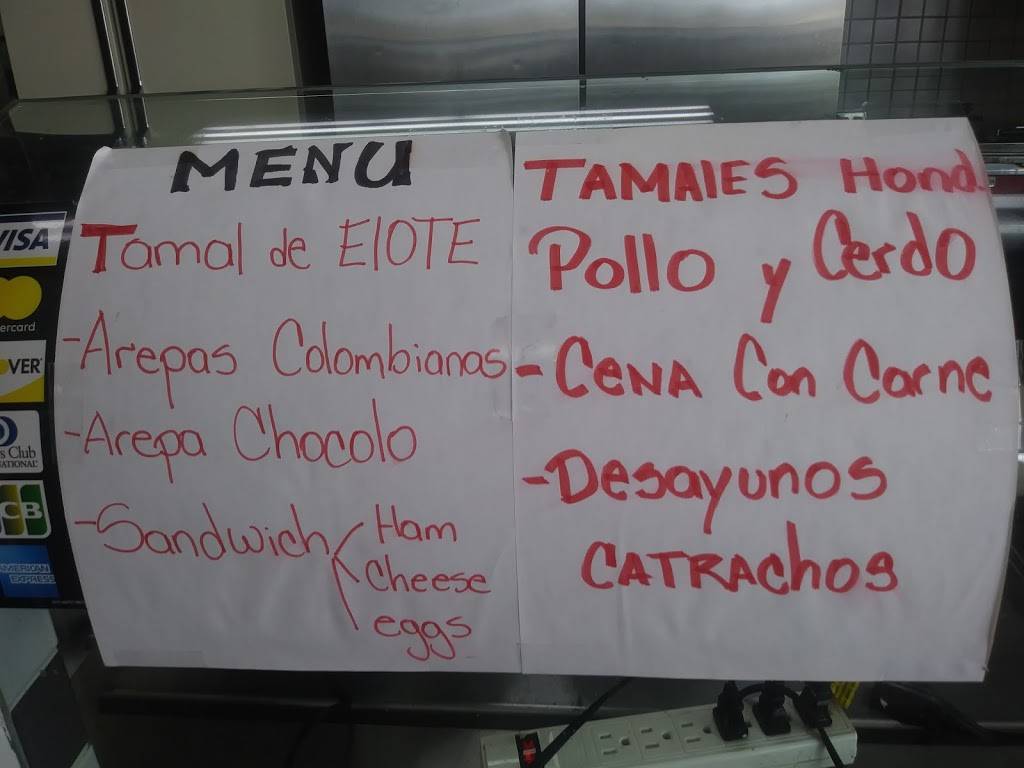 MENU
Tamal de ElOTE
-Arepas Colombianas
-Arepa Chocolo
-Sandwich Ham
Cheese
eggs
TAMAlES Hond.
Pollo y Cerdo
-CeNA Con Carne
-Desayunos
CATRAchos
VISA
ercard
VER
s Club
NATIONAL
CB
AMERICAN
EXPRESS